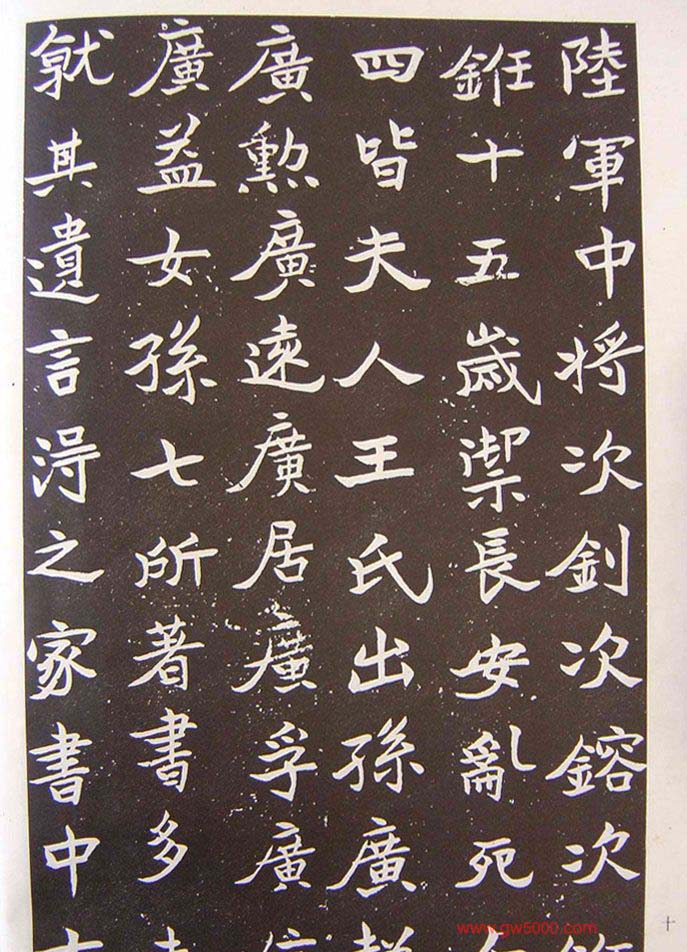 陸軍中將次釗次鎔次
十五歲禦長安亂死
四皆夫人王氏出孫廣
廣勲廣遠廣居廣孚廣
廣益女孫七所著書多
就其遺言淂之家書中
十
www.gw5000.com